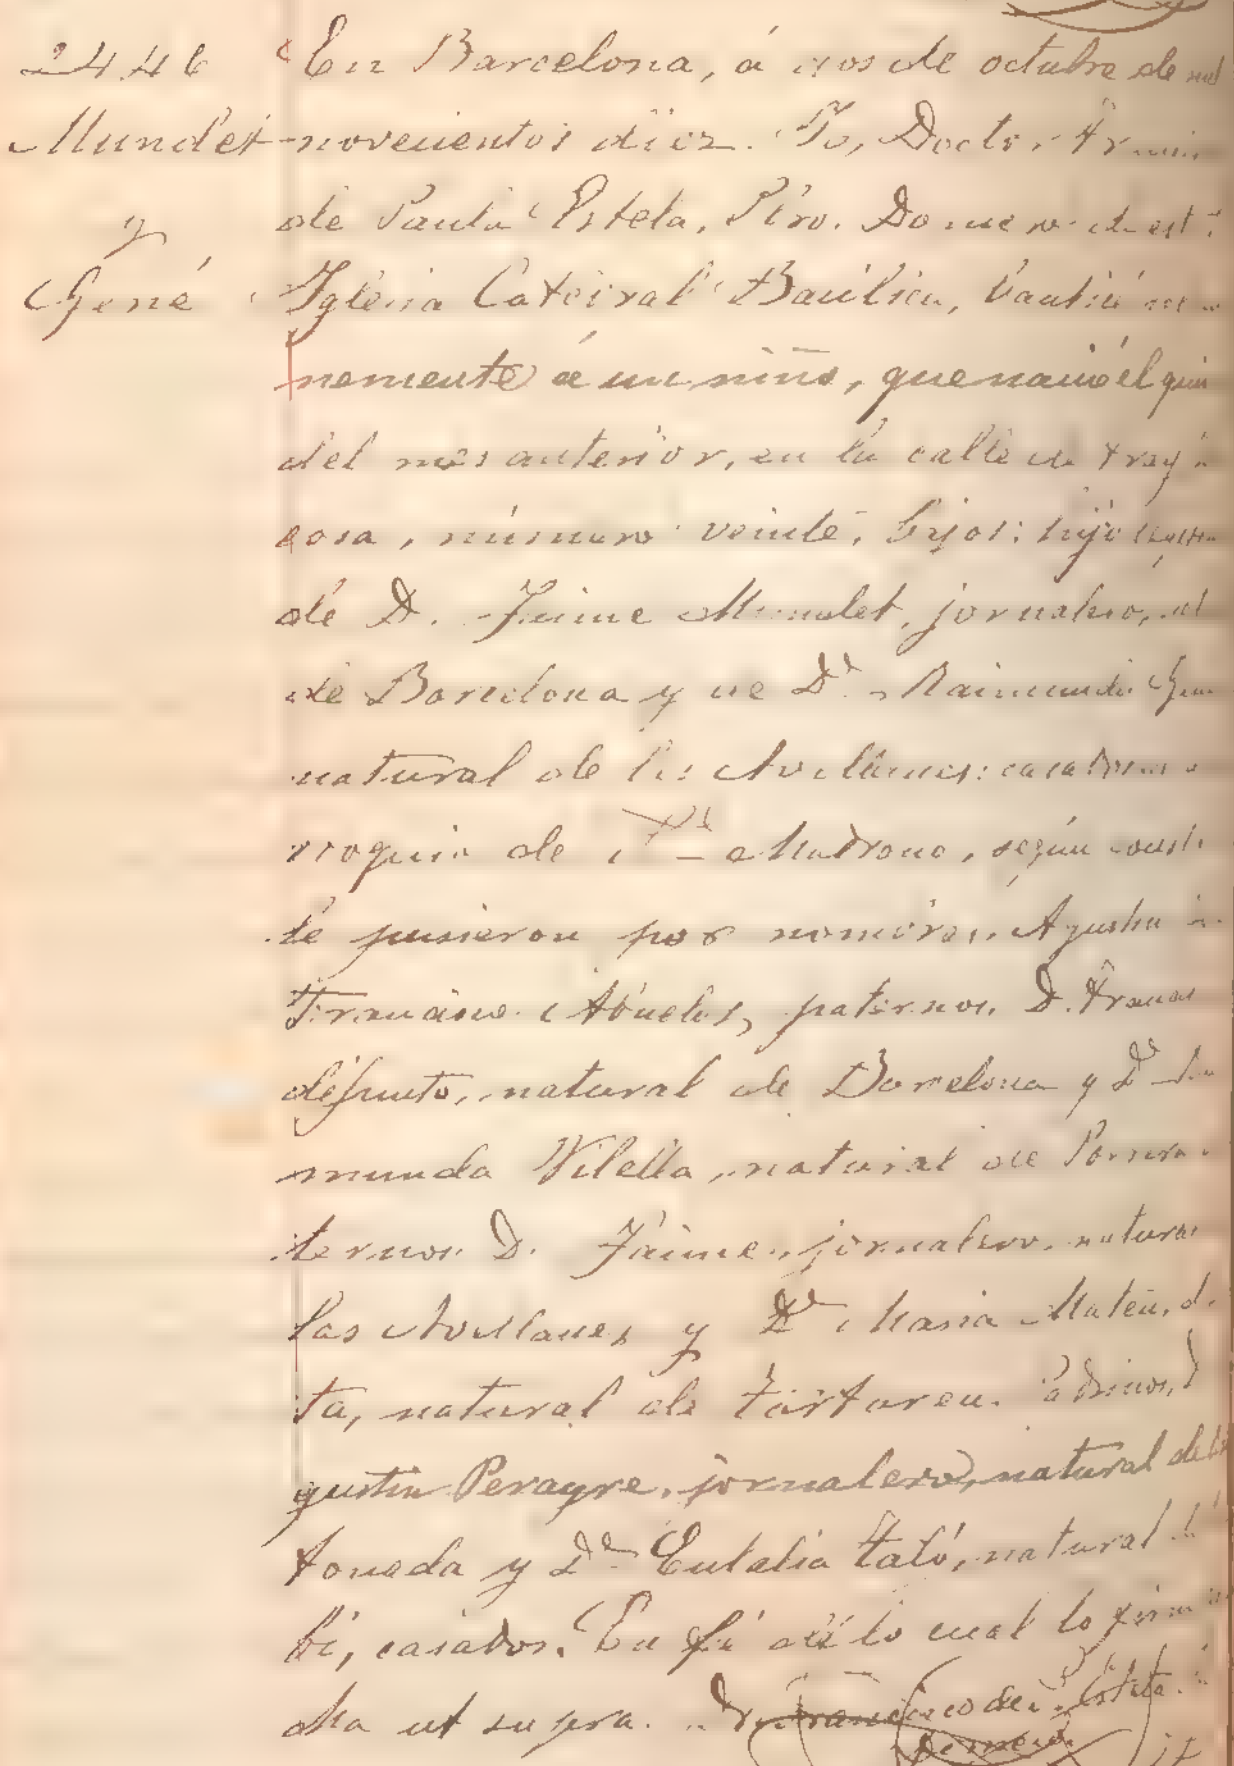 2446
Mundet
y
Gené
En Barcelona, á dos de octubre de mil
novecientos diez. Yo, Doctor
de Paula Esteta, Pbro. Domero de est
Iglesia Catedral Basílica, bauticé
nemente á un niño, que nació él quin
del mes anterior, en la calle de
cosa, número veinte, bajos: hijo
de D. Jaime Mundet, jornalero,
de Barcelona y de Dª Raimunda
natural de las Avellanes: casados
rroquia de Sta Madrona, según const
le pusieron por nombres, Agustin
Francisco. Abuelos, paternos, D. Franc
difunto, natural de Barcelona y Dª
munda Vilella, natural de
ternos D. Jaime, jornalero, natural
las Avellanes y Dª Maria Mateu, d
ta, natural de Tartareu. Padrinos, D
gustin Peragre, jornalero, natural de
foneda y Dª Eulalia Taló, natural
bi, casados. En fé de lo cual lo firm
cha ut supra. Dr. Francisco de P. Esteta
Domero